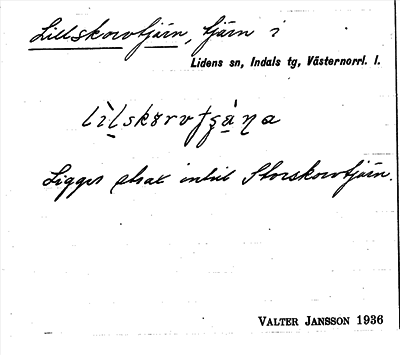 Lillskorvtjärn, tjärn i
Lidens sn, Indals tg, Västernorrl. l.
Ligger strax intill Storskorvtjärn.
VALTER JANSSON 1936